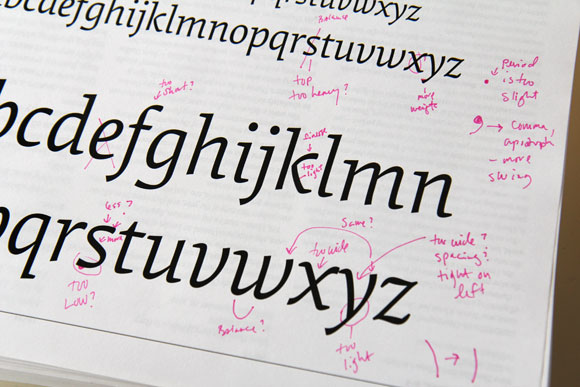 stuvwxyz
bcdefghijklmnopqrstuvwxyz
Balance
top
too heavy?
more
weight
Period
is too
slight
comma,
apostroph
- more
swing
too
short?
bcdefghijklmn
too
light
pqrstuvwxyz
less?
more
too
low?
Same?
too wide
Balance?
too
light
too wide?
spacing?
tight on
left